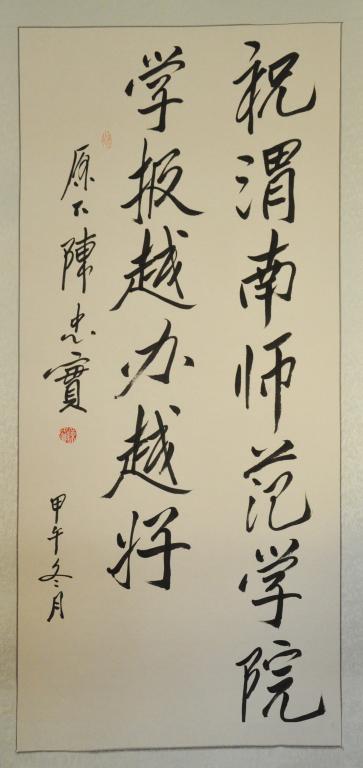 祝渭南师范学院
学报越办越好
原下陈忠實
甲午冬月